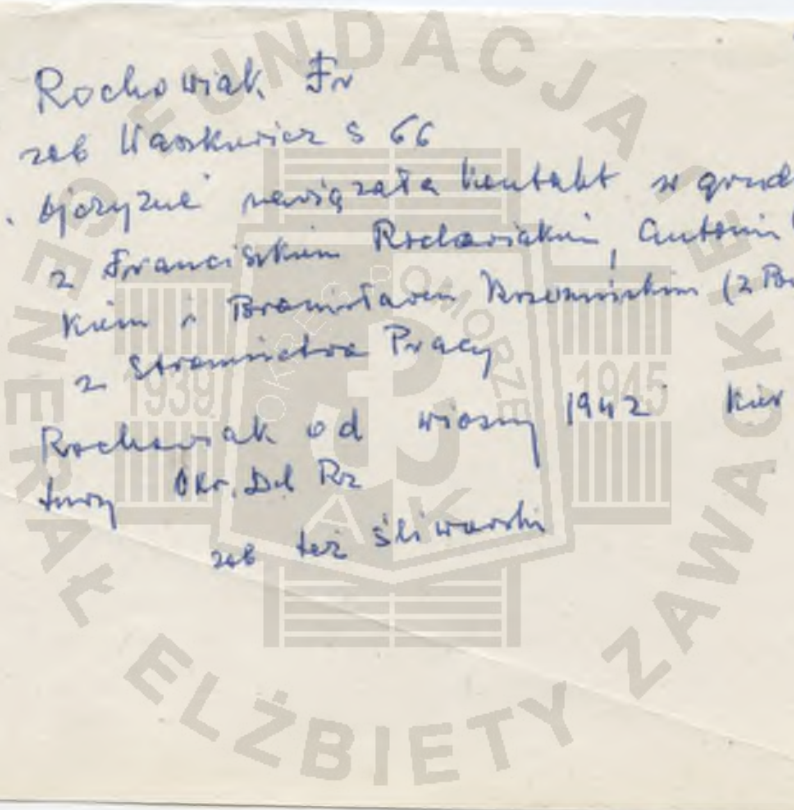 Rochowiak Fr
zob Waszkiewicz S 66
Ojczyzna nawiązała kontakt w grud
z Franciszkiem Rochowiakiem, Antonim
kiem i Bronisławem (z
z Stronnictwa Pracy
Rochowiak od wiosny 1942 kier
tury Okr. Del Rz
zob też śliwarski
FUNDACJA
GENERAŁ ELŻBIETY ZAWACKIEJ
OKRĘG POMORZE
1939 1945
AK